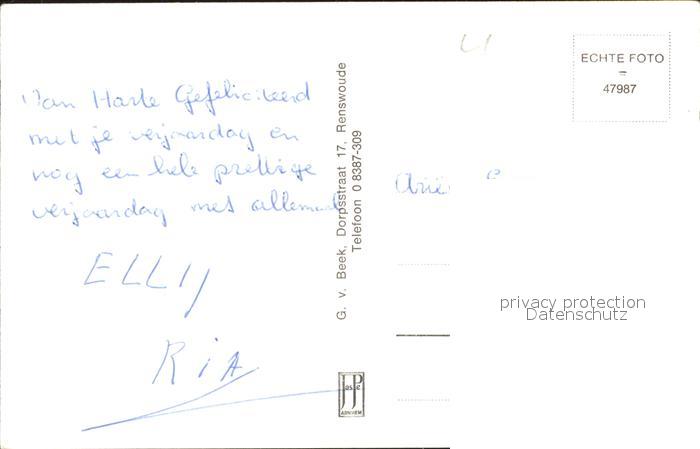 Van Harte Gefeliciteerd
met je verjaardag en
nog een hele prettige
verjaardag met allemaal
ELLIJ
RiA
G. v. Beek, Dorpsstraat 17, Renswoude
Telefoon 0 8387-309
JosPe
ARNHEM
ECHTE FOTO
47987
Arië
privacy protection
Datenschutz